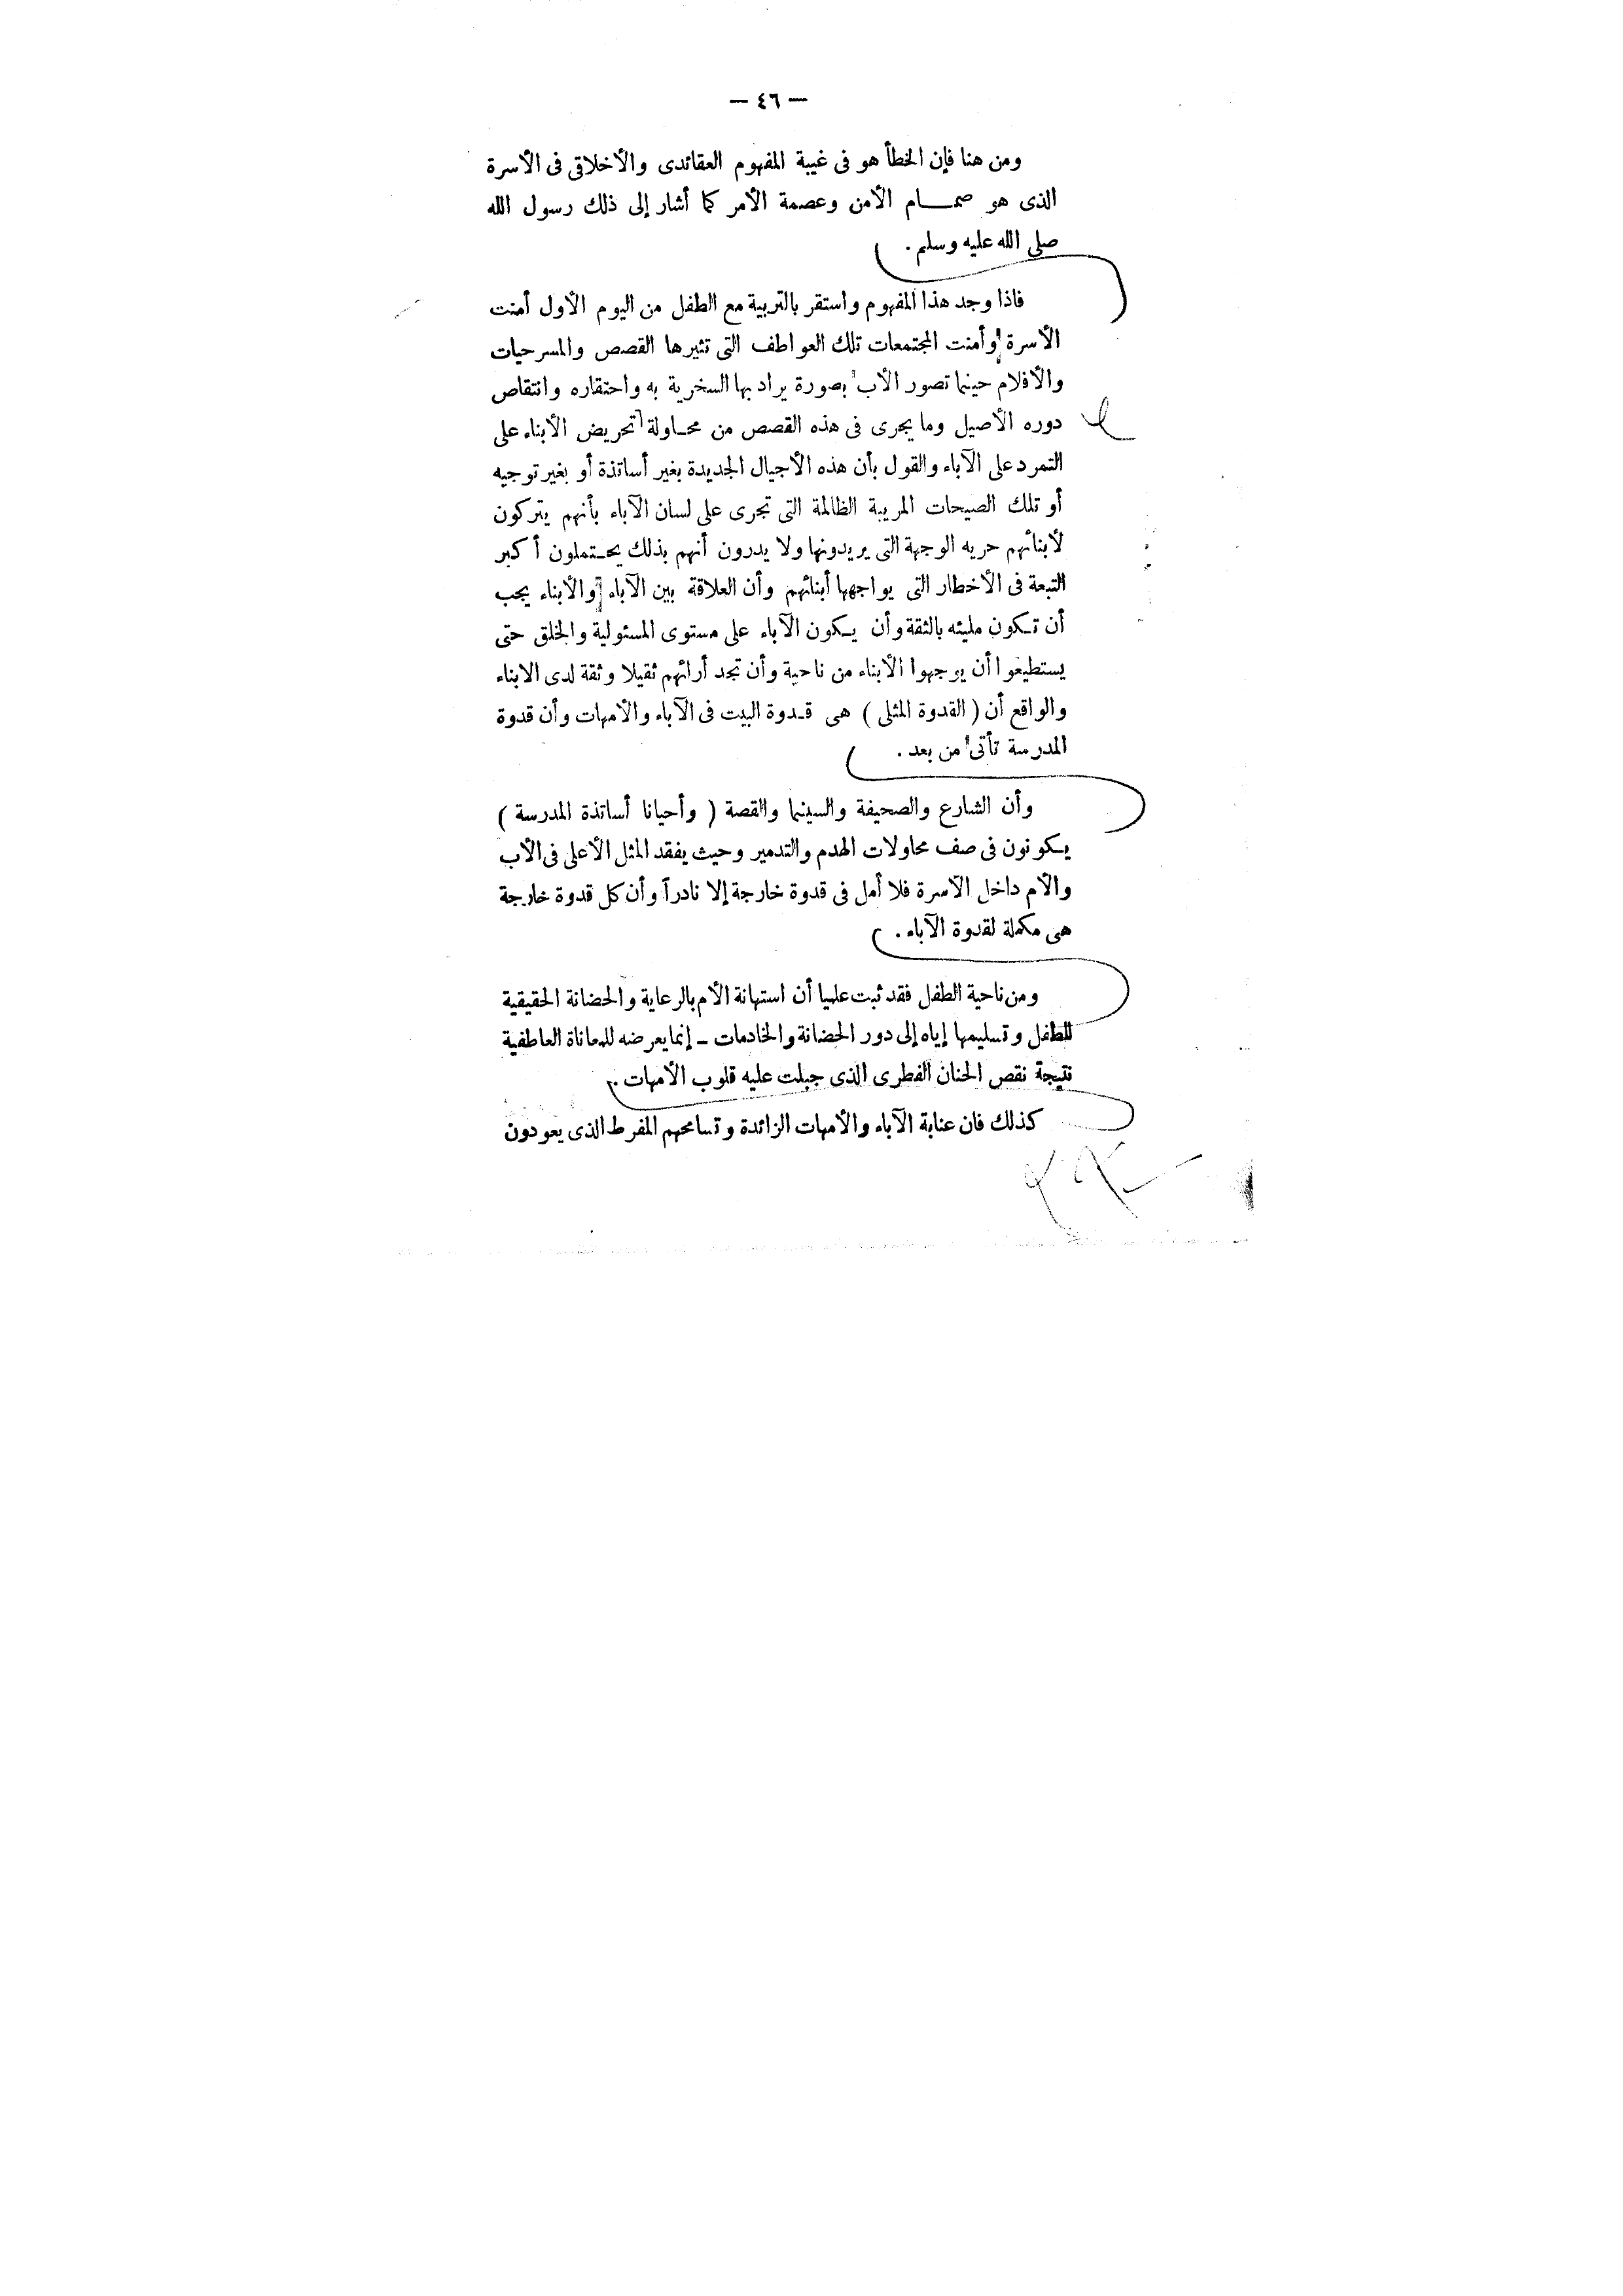 — ٤٦ —
ومن هنا فإن الخطأ هو فى غيبة المفهوم العقائدى والأخلاقى فى الأسرة
الذى هو صمـــام الأمن وعصمة الأمر كما أشار إلى ذلك رسول الله
صلى الله عليه وسلم .
فاذا وجد هذا المفهوم واستقر بالتربية مع الطفل من اليوم الأول أمنت
الأسرة وأمنت المجتمعات تلك العواطف التى تثيرها القصص والمسرحيات
والأفلام حينما تصور الأب بصورة يراد بها السخرية به واحتقاره وانتقاص
دوره الأصيل وما يجرى فى هذه القصص من محـاولة تحريض الأبناء على
التمرد على الآباء والقول بأن هذه الأجيال الجديدة بغير أساتذة أو بغير توجيه
أو تلك الصيحات المريبة الظالمة التى تجرى على لسان الآباء بأنهم يتركون
لأبنائهم حريه الوجهة التى يريدونها ولا يدرون أنهم بذلك يحـتملون أكبر
التبعة فى الأخطار التى يواجهها أبنائهم وأن العلاقة بين الآباء والأبناء يجب
أن تـكون مليئه بالثقة وأن يـكون الآباء على مستوى المسئولية والخلق حتى
يستطيعوا أن يوجهوا الأبناء من ناحية وأن تجد أرائهم ثقيلا وثقة لدى الابناء
والواقع أن ( القدوة المثلى ) هى قـدوة البيت فى الآباء والأمهات وأن قدوة
المدرسة تأتى من بعد .
وأن الشارع والصحيفة والسينما والقصة ( وأحيانا أساتذة المدرسة )
يـكونون فى صف محاولات الهدم والتدمير وحيث يفقد المثل الأعلى فى الأب
والأم داخل الآسرة فلا أمل فى قدوة خارجة إلا نادراً وأن كل قدوة خارجة
هى مكملة لقدوة الآباء .
ومن ناحية الطفل فقد ثبت علميا أن استهانة الأم بالرعاية والحضانة الحقيقية
للطفل وتسليمها إياه إلى دور الحضانة والخادمات – إنما يعرضه للمعاناة العاطفية
نتيجة نقص الحنان الفطرى الذى جبلت عليه قلوب الأمهات .
كذلك فان عناية الآباء والأمهات الزائدة وتسامحهم المفرط الذى يعودون